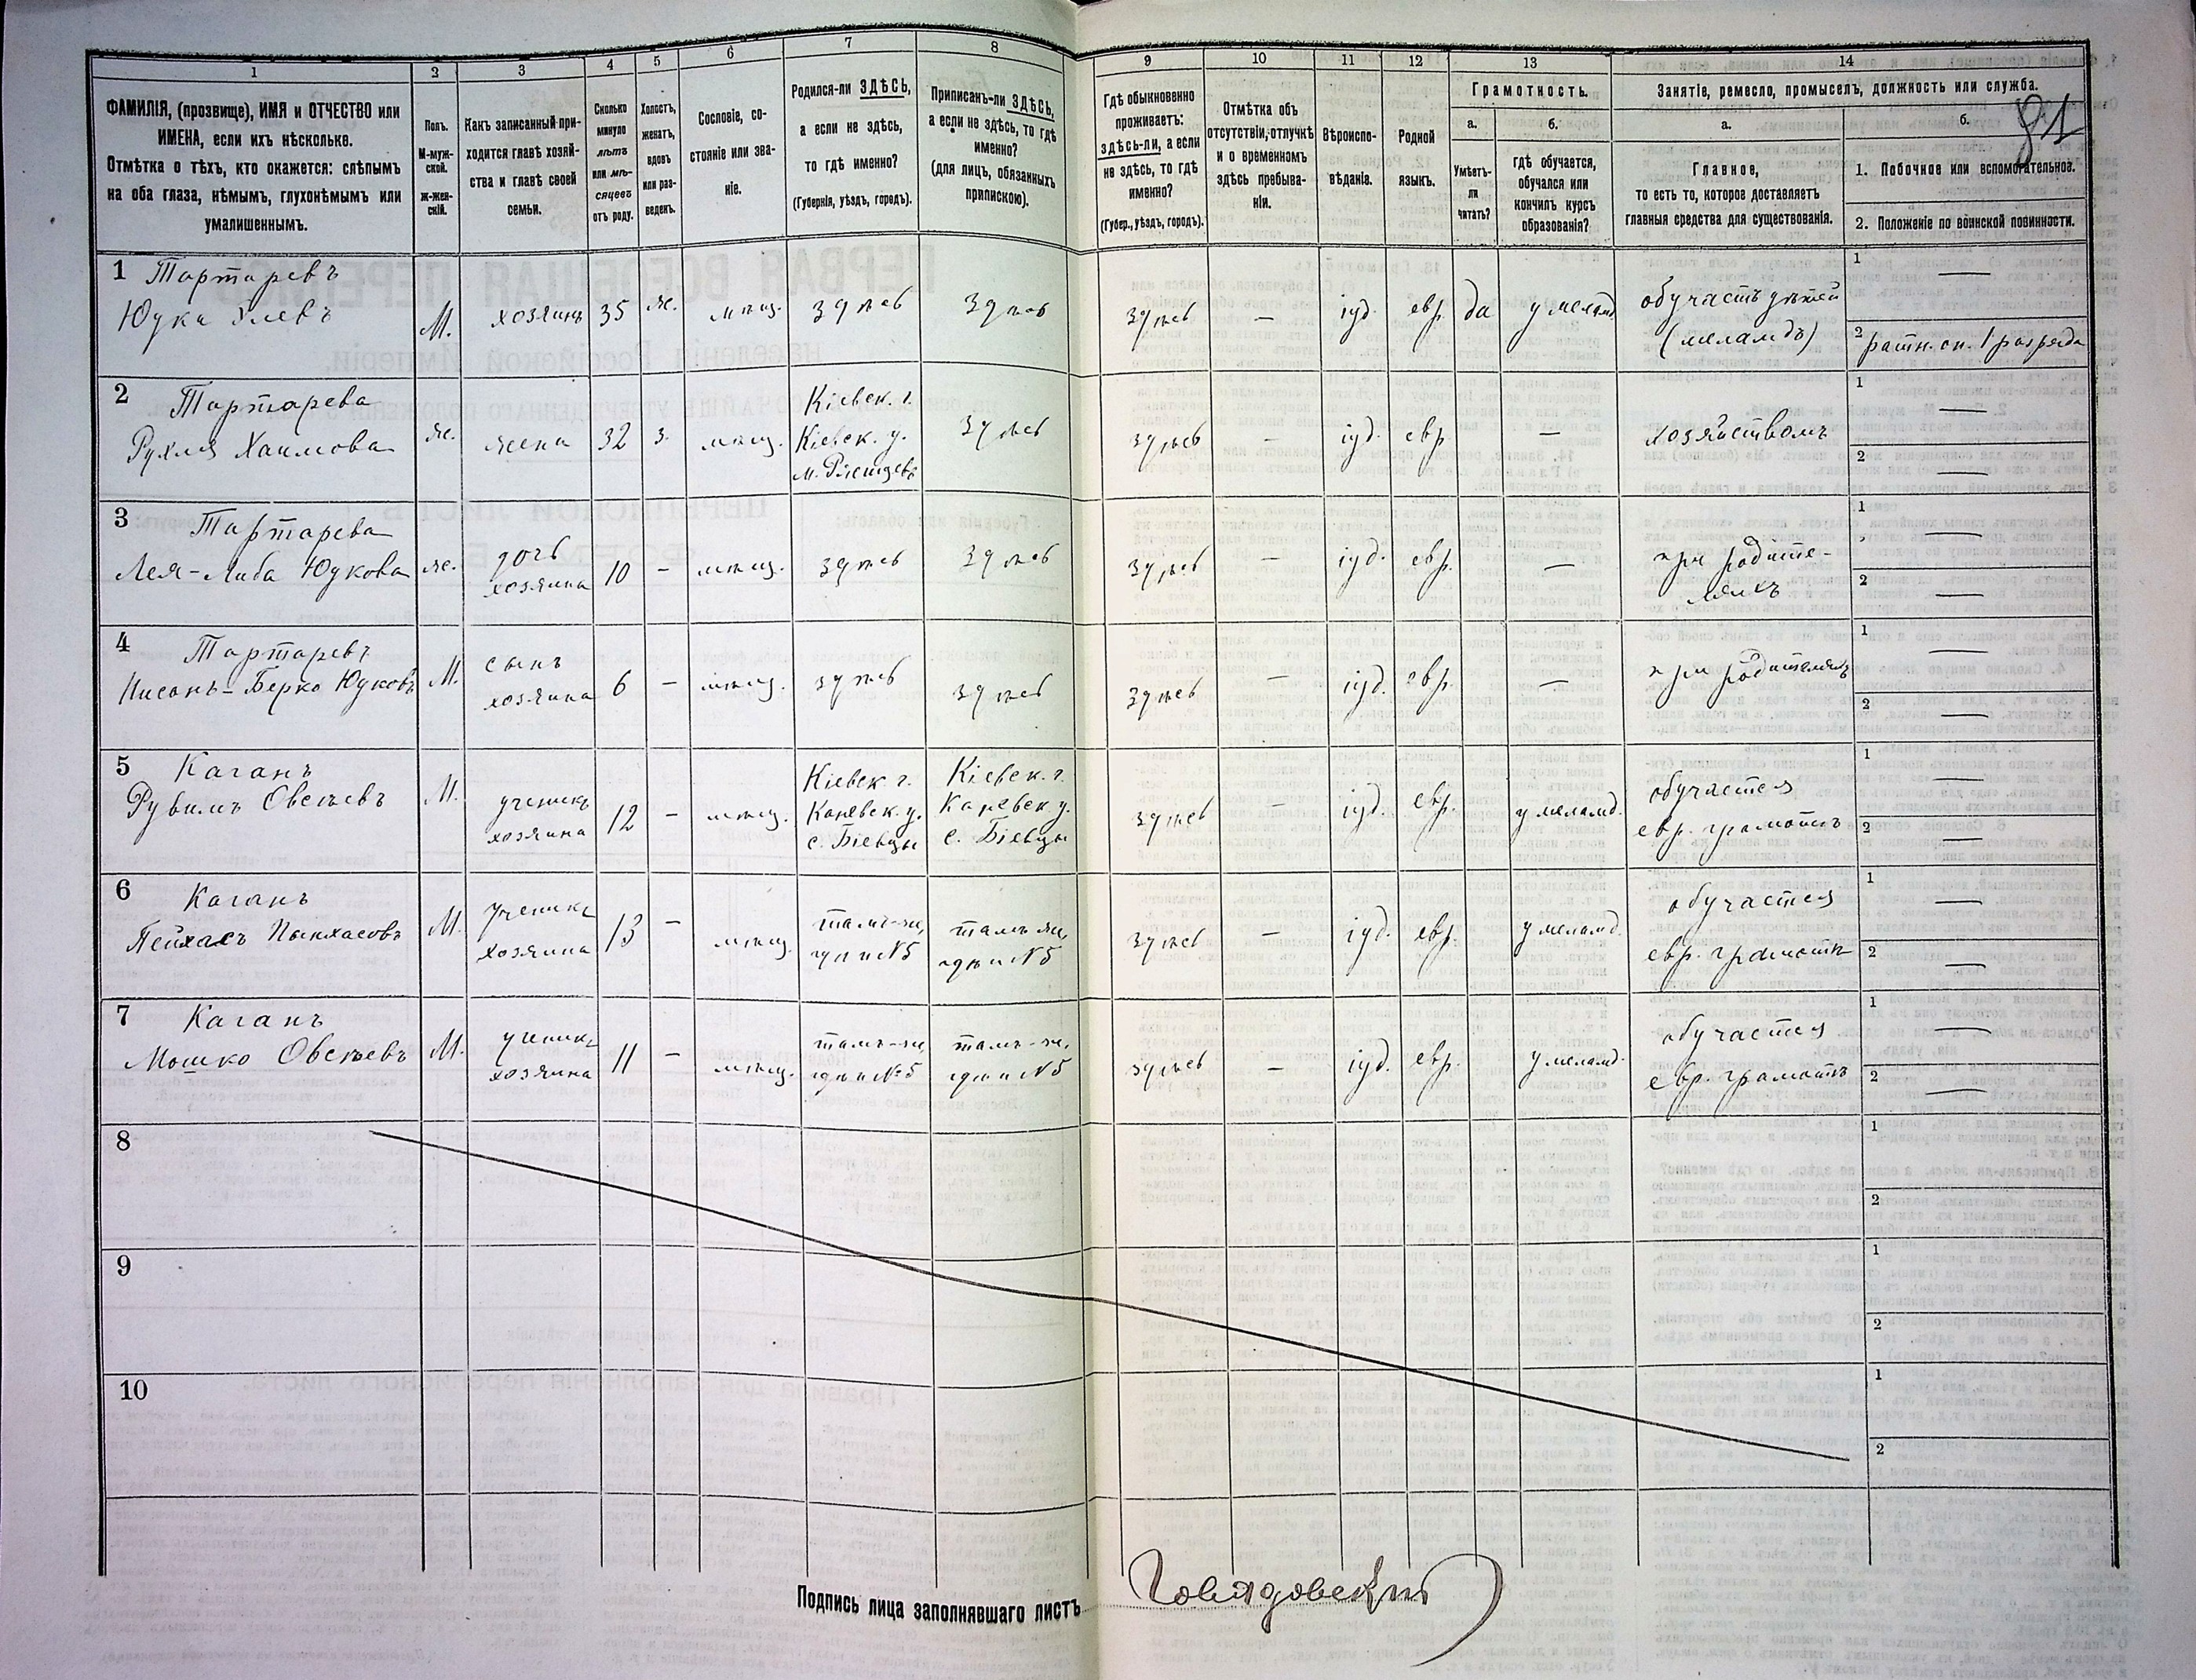 1 2 3 4 5 6 7 8 9 10 11 12 13 14
ФАМИЛІЯ, (прозвище), ИМЯ и ОТЧЕСТВО или
ИМЕНА, если ихъ нѣсколько.
Отмѣтка о тѣхъ, кто окажется: слѣпымъ
на оба глаза, нѣмымъ, глухонѣмымъ или
умалишеннымъ.
Полъ.
М-муж-
ской.
Ж-жен-
скій.
Какъ записанный при-
ходится главѣ хозяй-
ства и главѣ своей
семьи.
Сколько
минуло
лѣтъ
или мѣ-
сяцевъ
отъ роду.
Холостъ,
женатъ,
вдовъ
или раз-
веденъ.
Сословіе, со-
стояніе или зва-
ніе.
Родился-ли ЗДѢСЬ,
а если не здѣсь,
то гдѣ именно?
(Губернія, уѣздъ, городъ).
Приписанъ-ли ЗДѢСЬ,
а если не здѣсь, то гдѣ
именно?
(для лицъ, обязанныхъ
припискою).
Гдѣ обыкновенно
проживаетъ:
здѣсь-ли, а если
не здѣсь, то гдѣ
именно?
(Губер., уѣздъ, городъ).
Отмѣтка объ
отсутствіи, отлучкѣ
и о временномъ
здѣсь пребыва-
ніи.
Вѣроиспо-
вѣданіе.
Родной
языкъ.
Грамотность.
а.
Умѣетъ-
ли
читать?
б.
гдѣ обучается,
обучался или
кончилъ курсъ
образованія?
Занятіе, ремесло, промыселъ, должность или служба.
81
а.
Главное,
то есть то, которое доставляетъ
главныя средства для существованія.
б.
1. Побочное или вспомогательное.
2. Положеніе по воинской повинности.
1 Тартаревъ
Юдка
М. хозяинъ 35 ж. мѣщ. здѣсь здѣсь здѣсь — іуд. евр. да у мелам.
обучаетъ дѣтей
(меламдъ)
1 —
2 ратн. оп. 1 разряда
2 Тартарева
Рухля Хаимова
ж. жена 32 з. мѣщ.
Кіевск. г.
Кіевск. у.
м. Ржищевъ
здѣсь здѣсь — іуд. евр. — хозяйствомъ
1 —
2 —
3 Тартарева
Лея-Либа Юдкова
ж. дочь
хозяина
10 — мѣщ. здѣсь здѣсь здѣсь — іуд. евр. —
при родите-
ляхъ
1 —
2 —
4 Тартаревъ
Нисонъ-Берко Юдковъ
М. сынъ
хозяина
6 — мѣщ. здѣсь здѣсь здѣсь — іуд. евр. — при родителяхъ
1 —
2 —
5 Каганъ
Рувимъ Овсѣевъ
М. ученикъ
хозяина
12 — мѣщ.
Кіевск. г.
Каневск. у.
с. Біевцы
Кіевск. г.
Каневск. у.
с. Біевцы
здѣсь — іуд. евр. у меламд.
обучается
евр. грамотѣ
1 —
2 —
6 Каганъ
Пейхасъ
М. ученикъ
хозяина
13 — мѣщ.
тамъ-же,
гдѣ и №5
тамъ же,
гдѣ и №5
здѣсь — іуд. евр. у меламд.
обучается
евр. грамотѣ
1 —
2 —
7 Каганъ
Мошко Овсѣевъ
М. ученикъ
хозяина
11 — мѣщ.
тамъ-же,
гдѣ и №5
тамъ-же,
гдѣ и №5
здѣсь — іуд. евр. у меламд.
обучается
евр. грамотѣ
1 —
2 —
8
1
2
9
1
2
10
1
2
Подпись лица заполнявшаго листъ